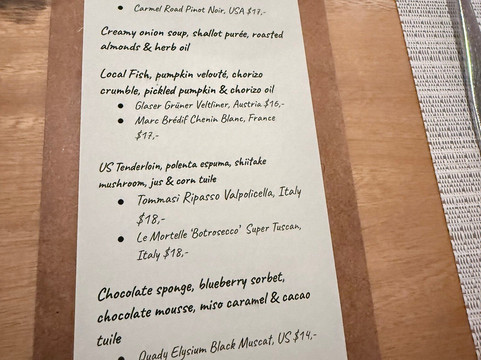 • Carmel Road Pinot Noir, USA $17,-
Creamy onion soup, shallot purée, roasted
almonds & herb oil
Local Fish, pumpkin velouté, chorizo
crumble, pickled pumpkin & chorizo oil
• Glaser Grüner Veltliner, Austria $16,-
• Marc Brédif Chenin Blanc, France
$17,-
US Tenderloin, polenta espuma, shiitake
mushroom, jus & corn tuile
• Tommasi Ripasso Valpolicella, Italy
$18,-
• Le Mortelle 'Botrosecco' Super Tuscan,
Italy $18,-
Chocolate sponge, blueberry sorbet,
chocolate mousse, miso caramel & cacao
tuile
• Quady Elysium Black Muscat, US $14,-